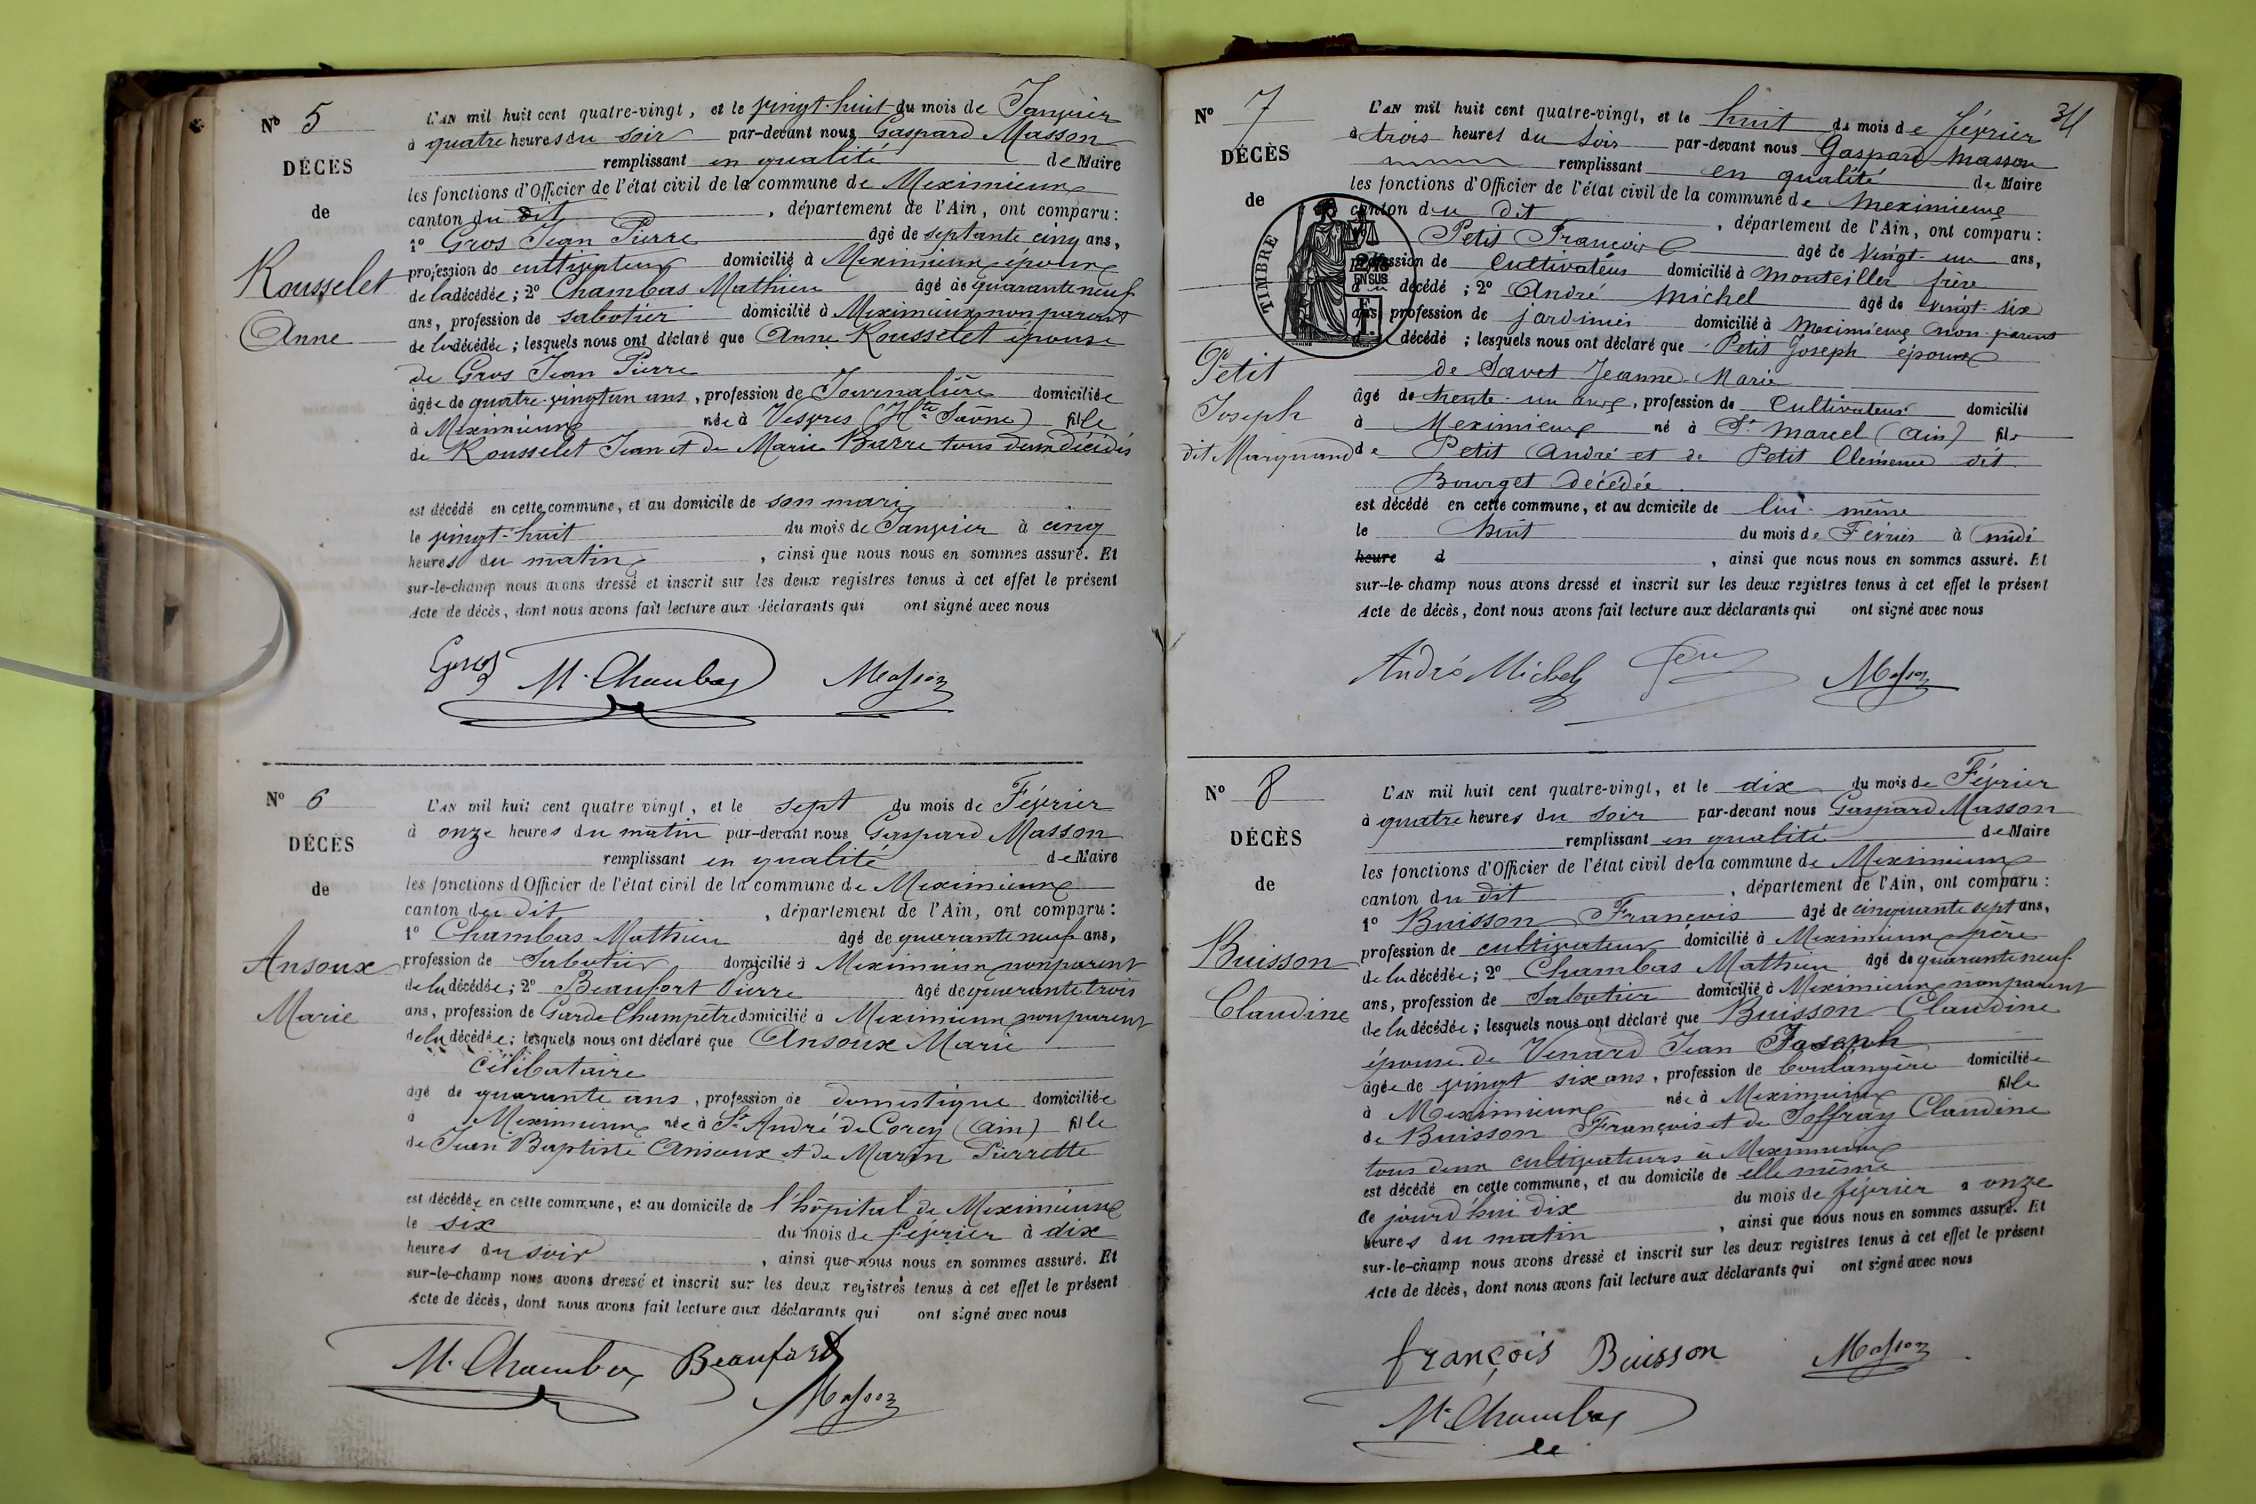 Nº 5
DÉCÈS
de
Rousselet
Anne
L'AN mil huit cent quatre-vingt, et le vingt-huit du mois de Janvier
à quatre heures du soir par-devant nous Gaspard Masson
remplissant en qualité de Maire
les fonctions d'Officier de l'état civil de la commune de Meximieux
canton du dit , département de l'Ain, ont comparu :
1º Gros Jean Pierre âgé de septante cinq ans,
profession de cultivateur domicilié à Meximieux époux
de la décédée ; 2º Chambas Mathieu âgé de quarante neuf
ans, profession de sabotier domicilié à Meximieux non parent
de la décédée ; lesquels nous ont déclaré que Anne Rousselet épouse
de Gros Jean Pierre
âgée de quatre-vingt un ans, profession de Journalière domiciliée
à Meximieux née à Vesvres (Hte Saône) fille
de Rousselet Jean et de Marie Barre tous deux décédés
est décédé en cette commune, et au domicile de son mari
le vingt-huit du mois de Janvier à cinq
heures du matin , ainsi que nous nous en sommes assuré. Et
sur-le-champ nous avons dressé et inscrit sur les deux registres tenus à cet effet le présent
Acte de décès, dont nous avons fait lecture aux déclarants qui ont signé avec nous
Gros M. Chambas Masson
Nº 6
DÉCÈS
de
Ansoux
Marie
L'AN mil huit cent quatre vingt, et le sept du mois de Février
à onze heures du matin par-devant nous Gaspard Masson
remplissant en qualité de Maire
les fonctions d'Officier de l'état civil de la commune de Meximieux
canton du dit , département de l'Ain, ont comparu :
1º Chambas Mathieu âgé de quarante neuf ans,
profession de Sabotier domicilié à Meximieux non parent
de la décédée ; 2º Beaufort Pierre âgé de quarante trois
ans, profession de Garde Champêtre domicilié à Meximieux non parent
de la décédée ; lesquels nous ont déclaré que Ansoux Marie
célibataire
âgé de quarante ans, profession de domestique domiciliée
à Meximieux née à St André de Corcy (Ain) fille
de Jean Baptiste Ansoux et de Marin Pierrette
est décédée en cette commune, et au domicile de l'hôpital de Meximieux
le six du mois de février à dix
heures du soir , ainsi que nous nous en sommes assuré. Et
sur-le-champ nous avons dressé et inscrit sur les deux registres tenus à cet effet le présent
Acte de décès, dont nous avons fait lecture aux déclarants qui ont signé avec nous
M. Chambas Beaufort
Masson
34
Nº 7
DÉCÈS
de
Petit
Joseph
dit Marquand
TIMBRE
EN SUS
L'AN mil huit cent quatre-vingt, et le huit du mois de février
à trois heures du soir par-devant nous Gaspard Masson
remplissant en qualité de Maire
les fonctions d'Officier de l'état civil de la commune de Meximieux
canton du dit , département de l'Ain, ont comparu :
Petit François âgé de vingt-un ans,
profession de Cultivateur domicilié à Monteiller frère
du décédé ; 2º André Michel âgé de vingt-six
ans, profession de jardinier domicilié à Meximieux non parent
décédé ; lesquels nous ont déclaré que Petit Joseph époux
de Savet Jeanne-Marie
âgé de trente-un ans, profession de Cultivateur domicilié
à Meximieux né à St Marcel (Ain) fils
de Petit André et de Petit Clémence dit
Bourget décédée
est décédé en cette commune, et au domicile de lui-même
le huit du mois de Février à midi
heure d , ainsi que nous nous en sommes assuré. Et
sur-le-champ nous avons dressé et inscrit sur les deux registres tenus à cet effet le présent
Acte de décès, dont nous avons fait lecture aux déclarants qui ont signé avec nous
André Michel Masson
Nº 8
DÉCÈS
de
Buisson
Claudine
L'AN mil huit cent quatre-vingt, et le dix du mois de Février
à quatre heures du soir par-devant nous Gaspard Masson
remplissant en qualité de Maire
les fonctions d'Officier de l'état civil de la commune de Meximieux
canton du dit , département de l'Ain, ont comparu :
1º Buisson François âgé de cinquante sept ans,
profession de cultivateur domicilié à Meximieux père
de la décédée ; 2º Chambas Mathieu âgé de quarante neuf
ans, profession de Sabotier domicilié à Meximieux non parent
de la décédée ; lesquels nous ont déclaré que Buisson Claudine
épouse de Venard Jean Joseph
âgée de vingt six ans, profession de boulangère domiciliée
à Meximieux née à Meximieux fille
de Buisson François et de Joffray Claudine
tous deux cultivateurs à Meximieux
est décédé en cette commune, et au domicile de elle même
ce jourd'hui dix du mois de février à onze
heures du matin , ainsi que nous nous en sommes assuré. Et
sur-le-champ nous avons dressé et inscrit sur les deux registres tenus à cet effet le présent
Acte de décès, dont nous avons fait lecture aux déclarants qui ont signé avec nous
françois Buisson Masson
M. Chambas